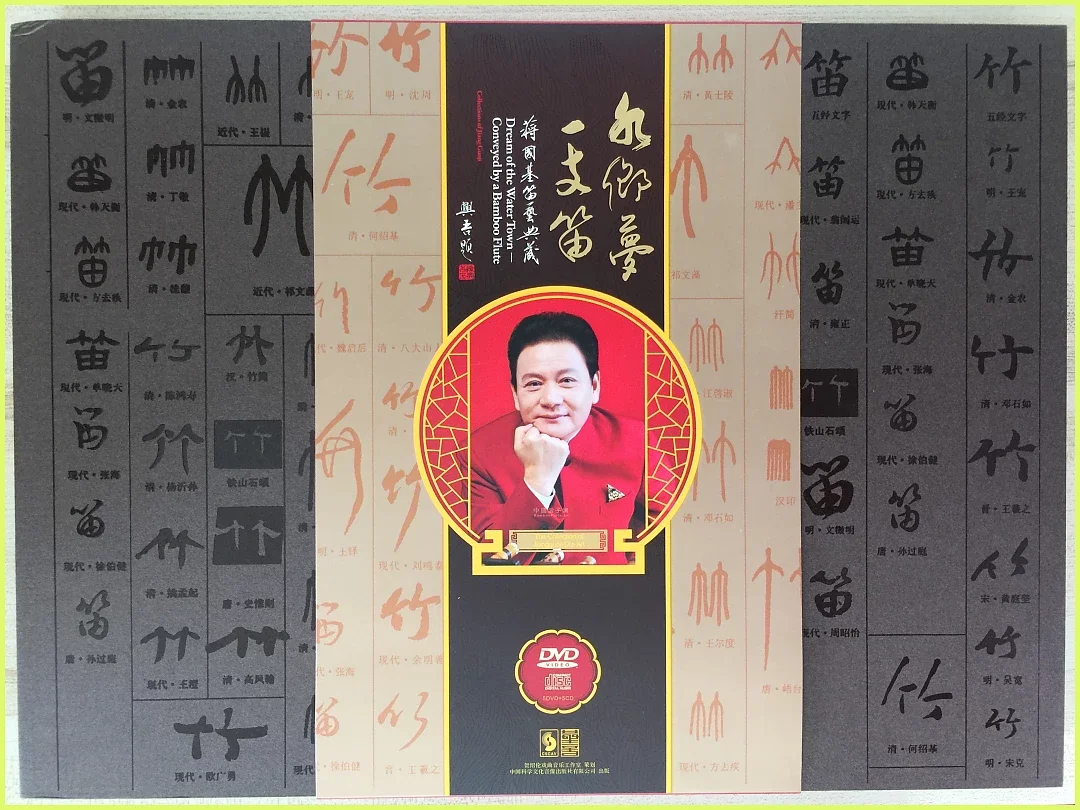 水乡梦
一支笛
蒋国基笛艺典藏
Dream of the Water Town —
Conveyed by a Bamboo Flute
Collections of Jiang Guoji
興吾题
笛
明·文徵明
笛
现代·韩天衡
笛
现代·方去疾
笛
现代·单晓天
笛
现代·张海
笛
现代·徐伯健
笛
唐·孙过庭
竹
清·金农
竹
清·丁敬
竹
竹
清·陈鸿寿
竹
清·杨沂孙
竹
清·姚孟起
竹
现代·王澄
竹
近代·王褆
竹
近代·祁文
竹
汉·竹简
竹
铁山石颂
竹
唐·史惟则
竹
清·高凤翰
竹
现代·欧广勇
竹
明·王宠
竹
明·沈周
竹
清·何绍基
竹
代·魏启后
竹
清·八大山人
竹
清·
竹
明·王铎
竹
现代·刘鸣泰
笛
代·张海
竹
现代·余明善
笛
·徐伯健
竹
晋·王羲之
竹
清·黄士陵
竹
现代·潘
竹
祁文
竹
汗简
竹
江
竹
汉印
竹
清·邓石如
竹
清·王尔度
竹
唐·
竹
现代·方去疾
笛
五经文字
笛
笛
清·雍正
竹
铁山石颂
笛
明·文徵明
笛
现代·周昭怡
笛
现代·韩天衡
笛
现代·方去疾
笛
现代·单晓天
笛
现代·张海
笛
现代·徐伯健
笛
唐·孙过庭
竹
清·何绍基
竹
五经文字
竹
明·王宠
竹
清·金农
竹
清·邓石如
竹
晋·王羲之
竹
宋·黄庭坚
竹
明·吴宽
竹
明·宋克
The Collection of
DVD
VIDEO
disc
DIGITAL AUDIO
5DVD+5CD
中国科学文化音像出版社有限公司 出版